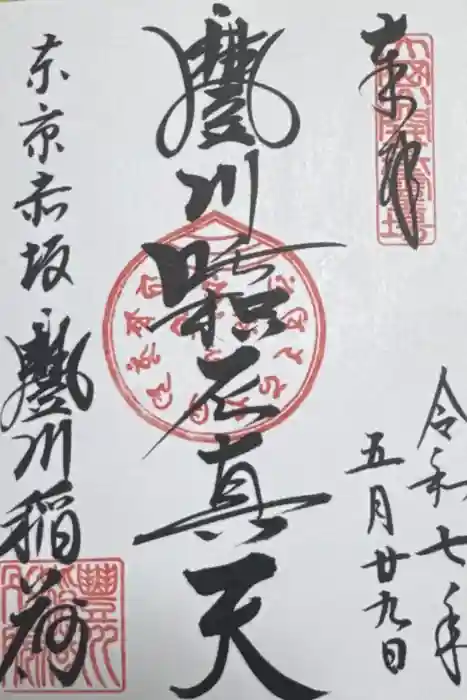 奉拝
令和七年
五月廿九日
豐川吒枳尼真天
東京赤坂
豐川稲荷